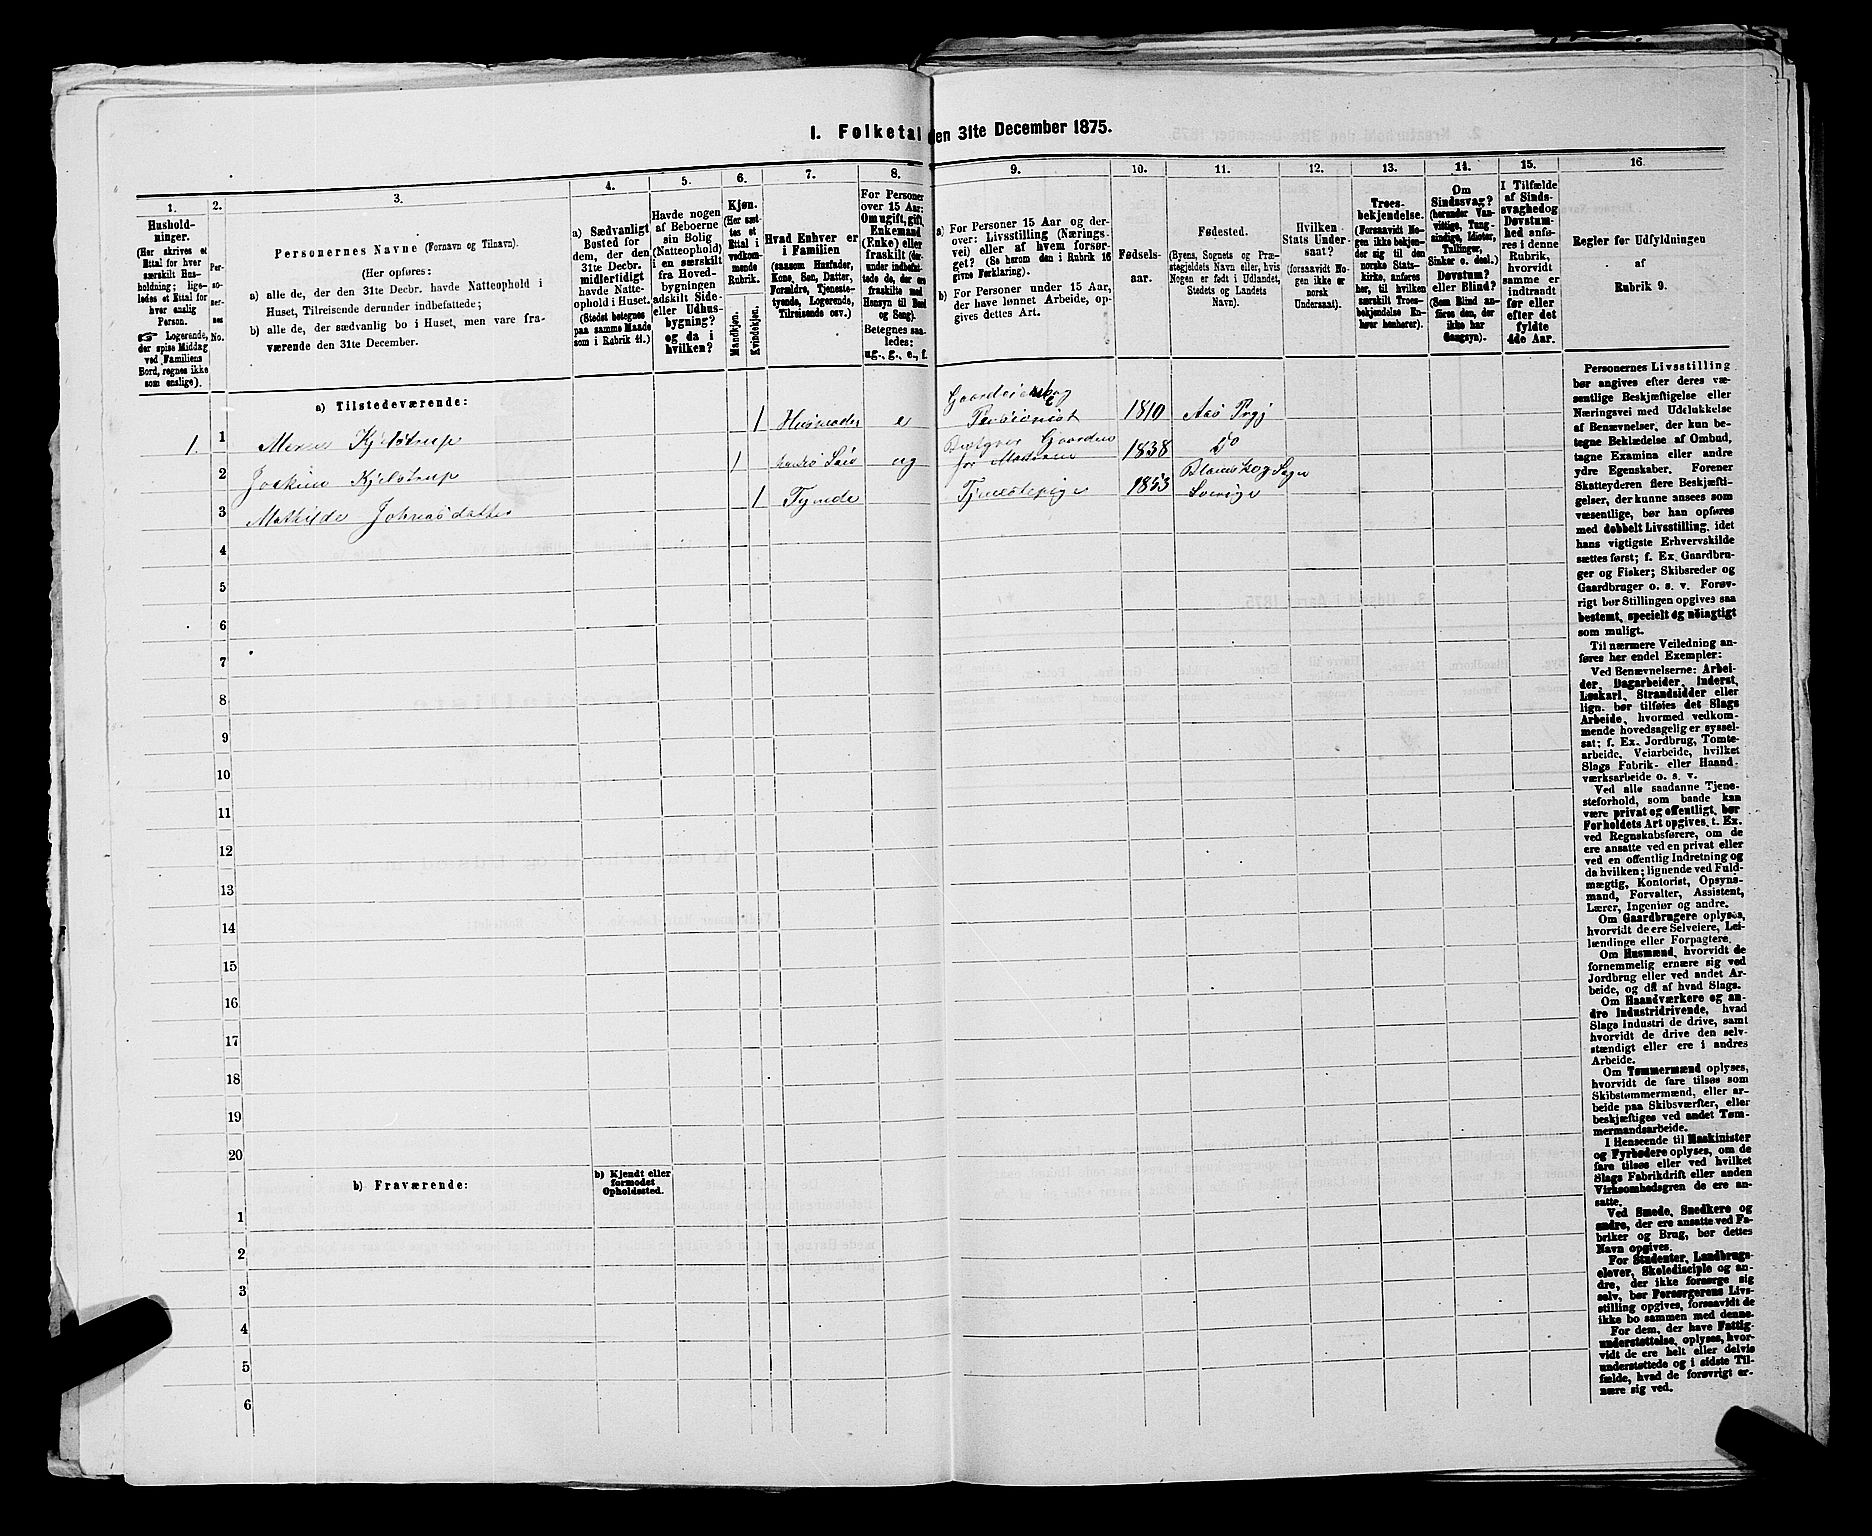 I. Folketal den 31te December 1875.
1.
Hushold-
ninger.
(Her skrives et
Ettal for hver
særskilt Hus-
holdning; lige-
ledes et Ettal for
hver enslig
Person.
☞ Logerende,
der spise Middag
ved Familiens
Bord, regnes ikke
som enslige).
2.
Per-
soner-
nes
No.
3.
Personernes Navne (Fornavn og Tilnavn).
(Her opføres:
a) alle de, der den 31te Decbr. havde Natteophold i
Huset, Tilreisende derunder indbefattede;
b) alle de, der sædvanlig bo i Huset, men vare fra-
værende den 31te December.
4.
a) Sædvanligt
Bosted for
dem, der den
31te Decbr.
midlertidigt
havde Natte-
ophold i Huset.
(Stedet betegnes
paa samme Maade
som i Rubrik 11.)
5.
Havde nogen
af Beboerne
sin Bolig
(Natteophold)
i en særskilt
fra Hoved-
bygningen
adskilt Side-
eller Udhus-
bygning?
og da i
hvilken?
6.
Kjøn.
(Her sæt-
tes et
Ettal i
vedkom-
mende
Rubrik.
Mandkjøn.
Kvindekjøn.
7.
Hvad Enhver er
i Familien
(saasom Husfader,
Kone, Søn, Datter,
Forældre, Tjeneste-
tyende, Logerende,
Tilreisende osv.)
8.
For Personer
over 15 Aar:
Om ugift, gift,
Enkemand
(Enke) eller
fraskilt (der-
under indbefat-
tede de, der ere
fraskilte med
Hensyn til Bord
og Seng).
Betegnes saa-
ledes:
ug., g., e., f.
9.
a) For Personer 15 Aar og der-
over: Livsstilling (Nærings-
vei) eller af hvem forsør-
get? (Se herom den i Rubrik 16
givne Forklaring).
b) For Personer under 15 Aar,
der have lønnet Arbeide, op-
gives dettes Art.
10.
Fødsels-
aar.
11.
Fødested.
(Byens, Sognets og Præ-
stegjeldets Navn eller, hvis
Nogen er født i Udlandet,
Stedets og Landets
Navn).
12.
Hvilken
Stats Under-
saat?
(forsaavidt No-
gen ikke er
norsk
Undersaat).
13.
Troes-
bekjendelse.
(Forsaavidt No-
gen ikke bekjen-
der sig til den
norske Stats-
kirke, anføres
her, til hvilken
særskilt Troes-
bekjendelse En-
hver henhører).
14.
Om
Sindssvag?
(herunder Van-
vittige, Tung-
sindige, Idioter,
Tullinger,
Sinker o. desl.)
Døvstum?
eller Blind?
(Som Blind an-
føres den, der
ikke har
Gangsyn).
15.
I Tilfælde
af Sinds-
svaghed og
Døvstum-
hed anfø-
res i denne
Rubrik,
hvorvidt
samme er
indtraadt
før eller
efter det
fyldte
4de Aar.
16.
Regler for Udfyldningen
af
Rubrik 9.
a) Tilstedeværende:
1. 1 Maren Kjelstrup 1 Husmoder e Gaardeierske og
Pensionist 1810 Aas Prgj
2 Jockim Kjelstrup 1 hendes Søn ug Bestyrer Gaarden
for Moderen 1838 Do
3 Mathilde Johnasdatter 1 Tyende Tjenestepige 1853 Sogn
Sverige
4
5
6
7
8
9
10
11
12
13
14
15
16
17
18
19
20
b) Fraværende:
b) Kjendt eller
formodet
Opholdssted.
1
2
3
4
5
6
Personernes Livsstilling
bør angives efter deres væ-
sentlige Beskjæftigelse eller
Næringsvei med Udelukkelse
af Benævnelser, der kun be-
tegne Beklædelse af Ombud,
tagne Examina eller andre
ydre Egenskaber. Forener
Skatteyderen flere Beskjæfti-
gelser, der kunne ansees som
væsentlige, bør han opføres
med dobbelt Livsstilling, idet
hans vigtigste Erhvervskilde
sættes først; f. Ex. Gaardbru-
ger og Fisker; Skibsreder og
Gaardbruger o. s. v. Forøv-
rigt bør Stillingen opgives saa
bestemt, specielt og nøiagtigt
som muligt.
Til nærmere Veiledning an-
føres her endel Exempler:
Ved Benævnelserne: Arbei-
der, Dagarbeider, Inderst,
Løskarl, Strandsidder eller
lign. bør tilføies det Slags
Arbeide, hvormed vedkom-
mende hovedsagelig er syssel-
sat; f. Ex. Jordbrug, Tomte-
arbeide, Veiarbeide, hvilket
Slags Fabrik- eller Haand-
værksarbeide o. s. v.
Ved alle saadanne Tjene-
steforhold, som baade kan
være privat og offentligt, bør
Forholdets Art opgives, t. Ex.
ved Regnskabsførere, om de
ere ansatte ved en privat eller
ved en offentlig Indretning og
da hvilken; lignende ved Fuld-
mægtig, Kontorist, Opsyns-
mand, Forvalter, Assistent,
Lærer, Ingeniør og andre.
Om Gaardbrugere oplyses,
hvorvidt de ere Selveiere, Lei-
lændinge eller Forpagtere.
Om Husmænd, hvorvidt de
fornemmelig ernære sig ved
Jordbrug eller ved andet Ar-
beide, og da af hvad Slags.
Om Haandværkere og an-
dre Industridrivende, hvad
Slags Industri de drive, samt
hvorvidt de drive den selv-
stændigt eller ere i andres
Arbeide.
Om Tømmermænd oplyses,
hvorvidt de fare tilsøs som
Skibstømmermænd, eller ar-
beide paa Skibsværfter, eller
beskjæftiges ved andet Tøm-
mermandsarbeide.
I Henseende til Maskinister
og Fyrbødere oplyses, om de
fare tilsøs eller ved hvilket
Slags Fabrikdrift eller anden
Virksomhedsgren de ere an-
satte.
Ved Smede, Snedkere og
andre, der ere ansatte ved Fa-
briker og Brug, bør dettes
Navn opgives.
For Studenter, Landbrugs-
elever, Skoledisciple og an-
dre, der ikke forsørge sig
selv, bør Forsørgerens Livs-
stilling opgives, forsaavidt de
ikke bo sammen med denne.
For dem, der have Fattig-
understøttelse, oplyses, hvor-
vidt de ere helt eller delvis
understøttede og i sidste Til-
fælde, hvad de forøvrigt er-
nære sig ved.